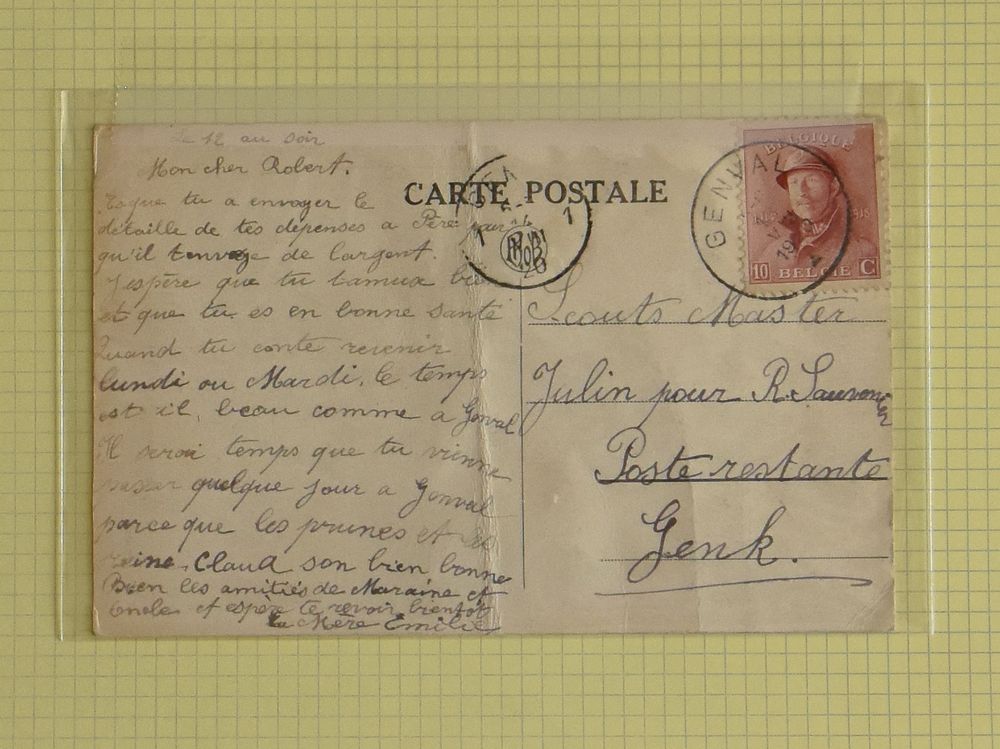 Le 12 au soir
Mon cher Robert.
Esque tu a envoyer le
détaille de tes dépenses a Père pour
qu'il t'envoye de l'argent.
J'espère que tu t'amux bien
et que tu es en bonne santé
Quand tu conte revenir
lundi ou Mardi, le temps
est il, beau comme a Genval
Il seroi temps que tu vienne
passer quelque jour a Genval
parce que les prunes et les
reine, Claud son bien bonne
Bien les amitiés de Maraine et
Oncle et espère te revoir bientot
ta Mère Emilie
CARTE POSTALE
1 1
20
GENVAL
BELGIQUE
1918
10 BELGIE C
Scouts Master
Julin pour R. Sauvenier
Poste restante
Genk.